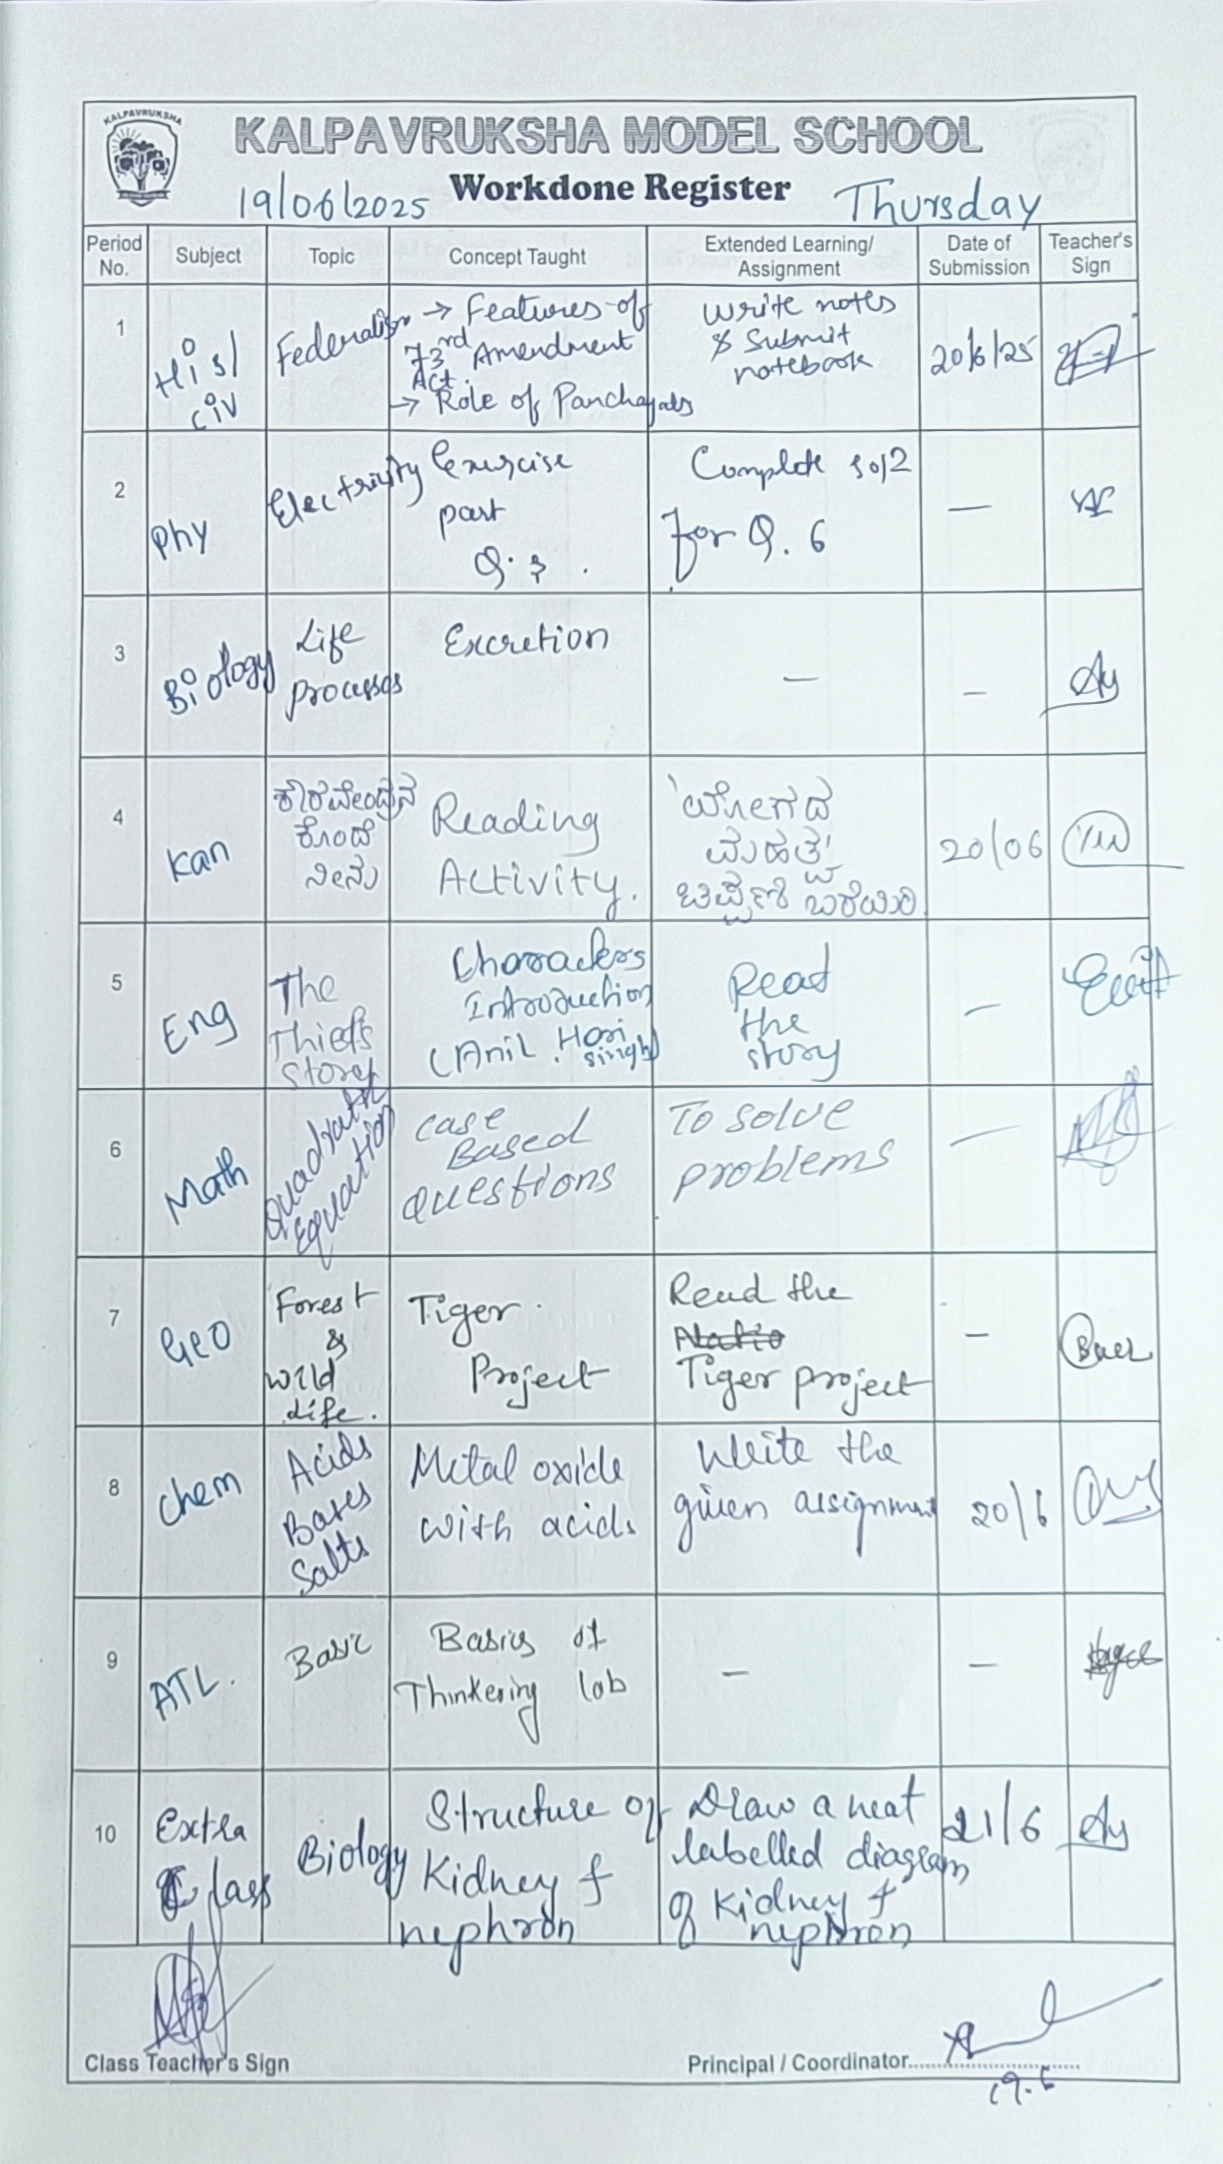 KALPAVRUKSHA
KALPAVRUKSHA MODEL SCHOOL
19/06/2025 Workdone Register Thursday
Period No. Subject Topic Concept Taught Extended Learning/ Assignment Date of Submission Teacher's Sign
1 His/ civ Federalism → Features of 73rd Amendment Act. → Role of Panchayats Write notes & Submit notebook 20/6/25
2 Phy Electricity Exercise part Q. Complete for Q. 6 —
3 Biology Life processes Excretion — —
4 Kan ಕೌರವೇಂದ್ರನ ಕೊಂದೆ ನೀನು Reading Activity. 'ಯೋಗದ ಮಹತ್ವ' ಟಿಪ್ಪಣಿ ಬರೆಯಿರಿ 20/06
5 Eng The Thief's Story Characters Introduction (Anil, Hari singh) Read the story —
6 Math Quadratic Equation case Based questions To solve problems —
7 Geo Forest & wild life. Tiger Project Read the Tiger project —
8 Chem Acids Bases Salts Metal oxide with acids Write the given assignment 20/6
9 ATL. Basic Basics of Thinkering lab — —
10 Extra Class Biology Structure of Kidney & nephron Draw a neat labelled diagram of Kidney & nephron 21/6
Class Teacher's Sign Principal / Coordinator
19.6